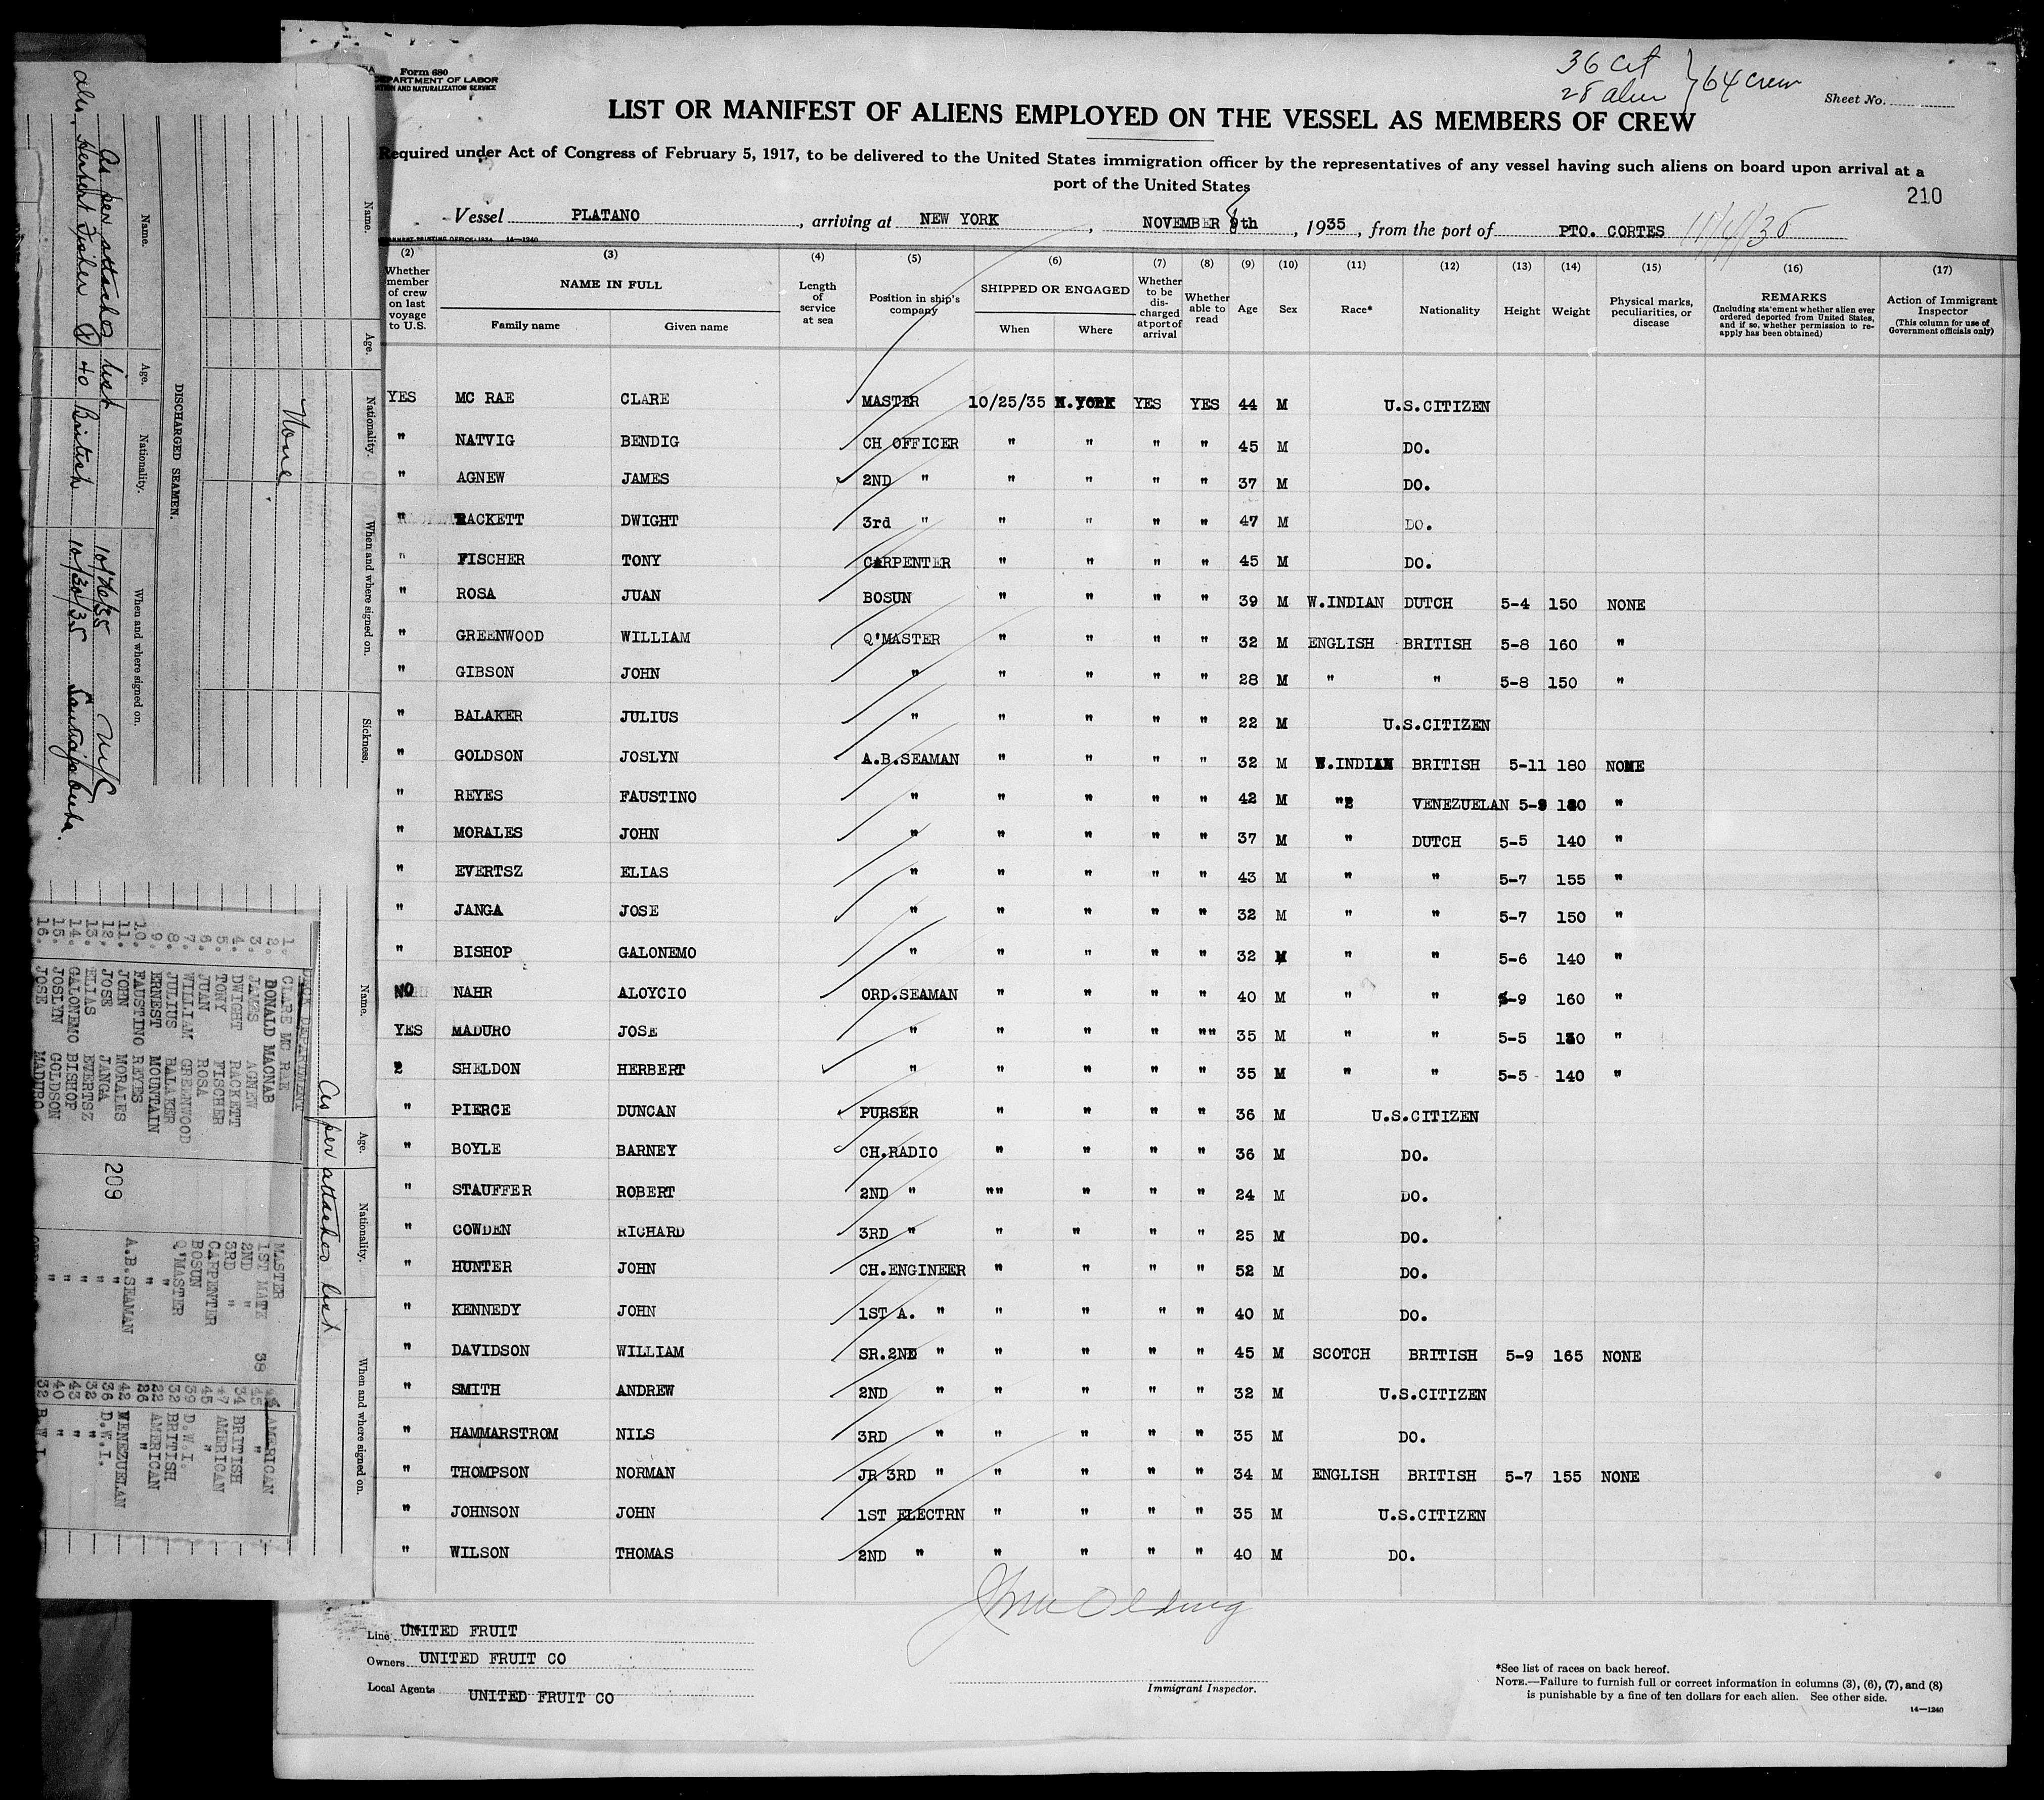 Form 680
DEPARTMENT OF LABOR
AND NATURALIZATION SERVICE
36 Cit
28 alien } 64 crew
Sheet No.
LIST OR MANIFEST OF ALIENS EMPLOYED ON THE VESSEL AS MEMBERS OF CREW
Required under Act of Congress of February 5, 1917, to be delivered to the United States immigration officer by the representatives of any vessel having such aliens on board upon arrival at a
port of the United States
210
Vessel PLATANO, arriving at NEW YORK, NOVEMBER 8th, 1935, from the port of PTO. CORTES
14—1240
(2) (3) (4) (5) (6) (7) (8) (9) (10) (11) (12) (13) (14) (15) (16) (17)
Whether member of crew on last voyage to U.S. NAME IN FULL Family name Given name Length of service at sea Position in ship's company SHIPPED OR ENGAGED When Where Whether to be discharged at port of arrival Whether able to read Age Sex Race* Nationality Height Weight Physical marks, peculiarities, or disease REMARKS (Including statement whether alien ever ordered deported from United States, and if so, whether permission to re-apply has been obtained) Action of Immigrant Inspector (This column for use of Government officials only)
YES MC RAE CLARE MASTER 10/25/35 N.YORK YES YES 44 M U.S.CITIZEN
" NATVIG BENDIG CH OFFICER " " " " 45 M DO.
" AGNEW JAMES 2ND " " " " " 37 M DO.
" RACKETT DWIGHT 3rd " " " " " 47 M DO.
" FISCHER TONY CARPENTER " " " " 45 M DO.
" ROSA JUAN BOSUN " " " " 39 M W.INDIAN DUTCH 5-4 150 NONE
" GREENWOOD WILLIAM Q'MASTER " " " " 32 M ENGLISH BRITISH 5-8 160 "
" GIBSON JOHN " " " " " 28 M " " 5-8 150 "
" BALAKER JULIUS " " " " " 22 M U.S.CITIZEN
" GOLDSON JOSLYN A.B.SEAMAN " " " " 32 M W.INDIAN BRITISH 5-11 180 NONE
" REYES FAUSTINO " " " " " 42 M " VENEZUELAN 5-9 180 "
" MORALES JOHN " " " " " 37 M " DUTCH 5-5 140 "
" EVERTSZ ELIAS " " " " " 43 M " " 5-7 155 "
" JANGA JOSE " " " " " 32 M " " 5-7 150 "
" BISHOP GALONEMO " " " " " 32 M " " 5-6 140 "
NO NAHR ALOYCIO ORD.SEAMAN " " " " 40 M " " 5-9 160 "
YES MADURO JOSE " " " " "" 35 M " " 5-5 130 "
" SHELDON HERBERT " " " " " 35 M " " 5-5 140 "
" PIERCE DUNCAN PURSER " " " " 36 M U.S.CITIZEN
" BOYLE BARNEY CH.RADIO " " " " 36 M DO.
" STAUFFER ROBERT 2ND " "" " " " 24 M DO.
" COWDEN RICHARD 3RD " " " " " 25 M DO.
" HUNTER JOHN CH.ENGINEER " " " " 52 M DO.
" KENNEDY JOHN 1ST A. " " " " " 40 M DO.
" DAVIDSON WILLIAM SR.2ND " " " " " 45 M SCOTCH BRITISH 5-9 165 NONE
" SMITH ANDREW 2ND " " " " " 32 M U.S.CITIZEN
" HAMMARSTROM NILS 3RD " " " " " 35 M DO.
" THOMPSON NORMAN JR 3RD " " " " " 34 M ENGLISH BRITISH 5-7 155 NONE
" JOHNSON JOHN 1ST ELECTRN " " " " 35 M U.S.CITIZEN
" WILSON THOMAS 2ND " " " " " 40 M DO.
Line UNITED FRUIT
Owners UNITED FRUIT CO
Local Agents UNITED FRUIT CO
Immigrant Inspector.
*See list of races on back hereof.
NOTE.—Failure to furnish full or correct information in columns (3), (6), (7), and (8)
is punishable by a fine of ten dollars for each alien. See other side.
14—1240
Name. Age. Nationality. When and where signed on. Sickness.
None.
DISCHARGED SEAMEN.
Name. Age. Nationality. When and where signed on.
As per attached list 10/26/35 N.Y.
40 British 10/30/35
Name. Age. Nationality. When and where signed on.
As per attached list
DECK DEPARTMENT
1. CLARE MC RAE MASTER AMERICAN
2. DONALD MACNAB 1ST MATE 38 "
3. JAMES AGNEW 2ND " 34 BRITISH
4. DWIGHT RACKETT 3RD " 47 AMERICAN
5. TONY FISCHER CARPENTER 45 "
6. JUAN ROSA BOSUN 39 D.W.I.
7. WILLIAM GREENWOOD Q'MASTER 32 BRITISH
8. JULIUS BALAKER " 22 AMERICAN
9. ERNEST MOUNTAIN " 26 "
10. FAUSTINO REYES A.B.SEAMAN 42 VENEZUELAN
11. JOHN MORALES " 36 D.W.I.
12. JOSE JANGA " 32 "
13. ELIAS EVERTSZ " 43 "
14. GALONEMO BISHOP " 40 "
15. JOSLYN GOLDSON " 32 B.W.I.
16. JOSE MADURO
209